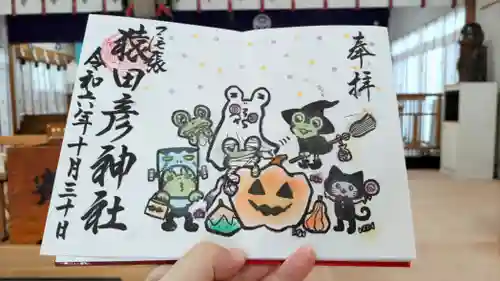 奉拝
アモ張
猿田彦神社
令和六年十月三十日